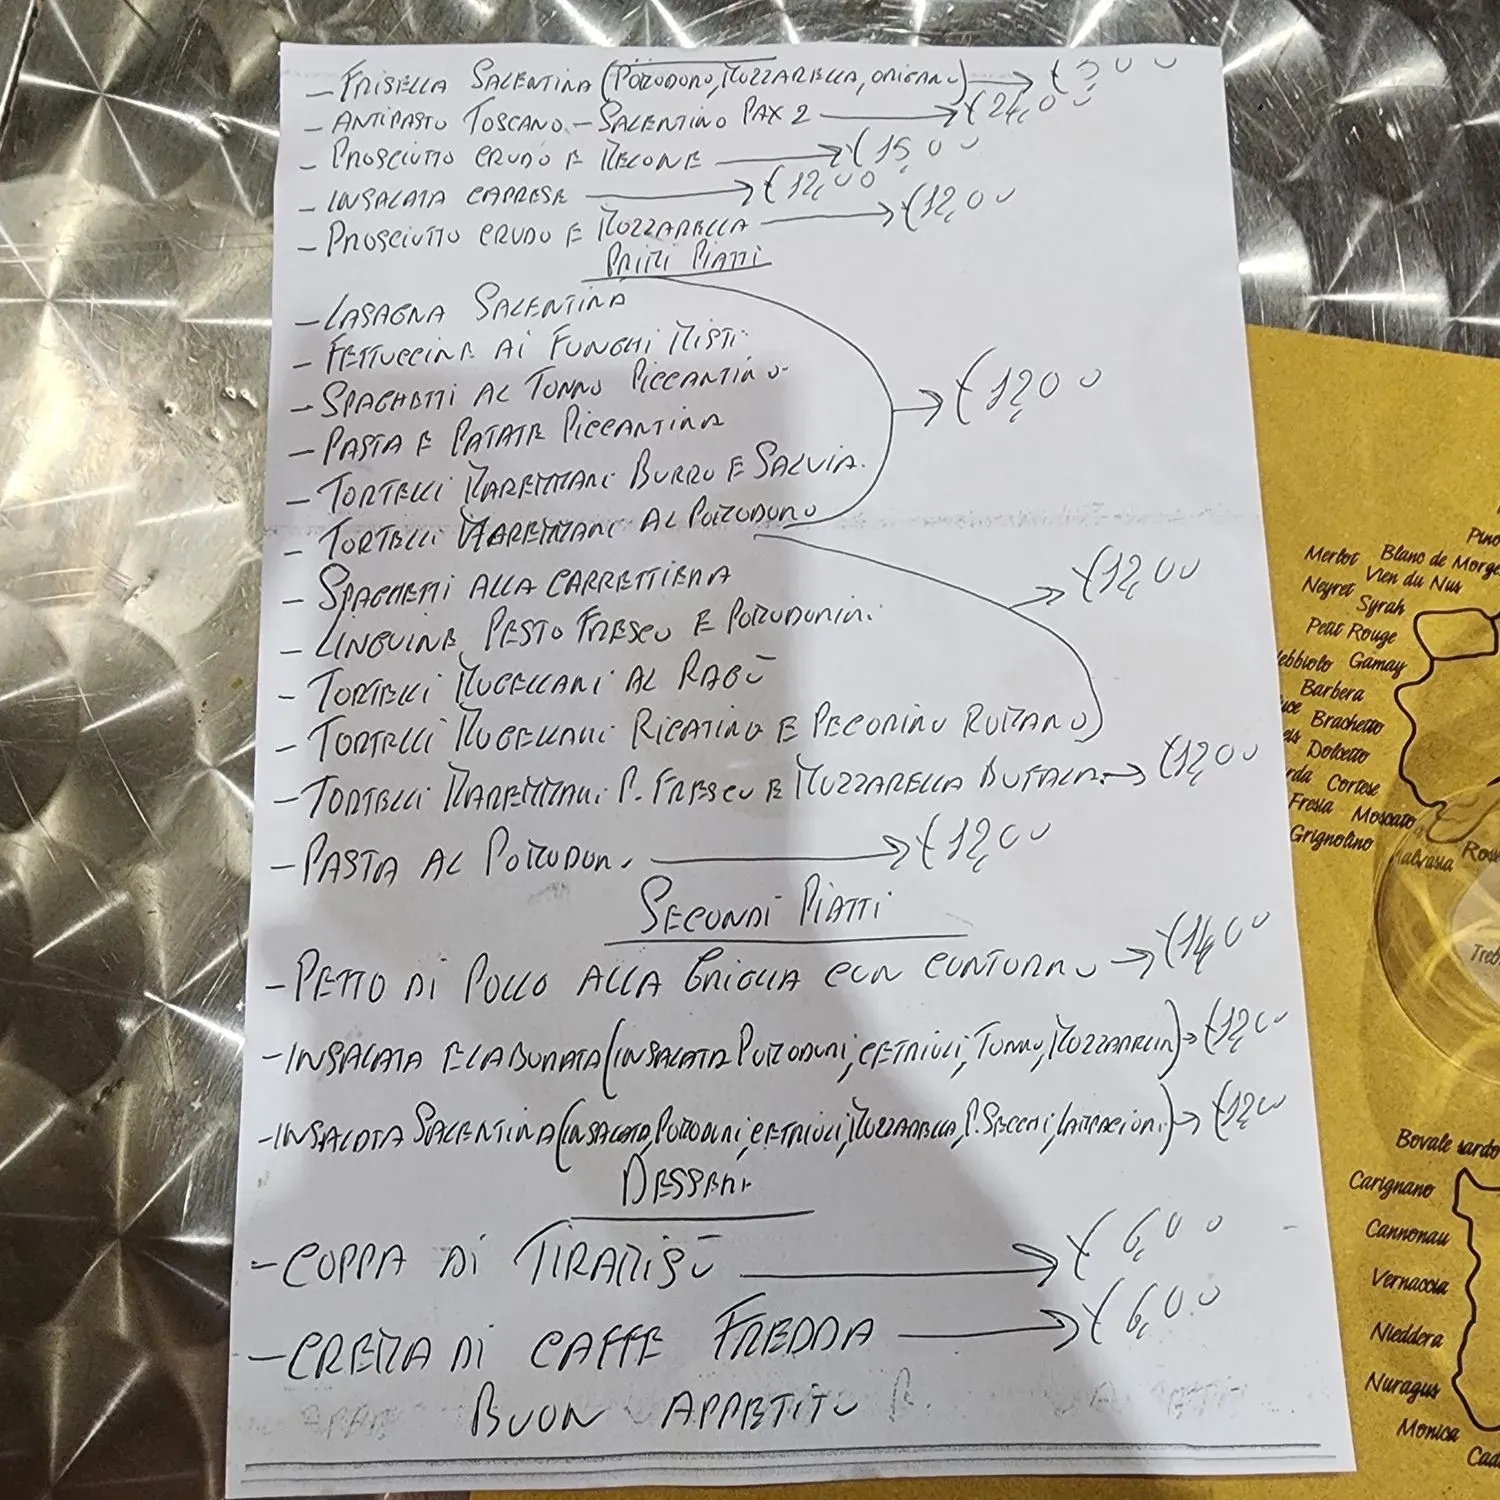 - FRISELLA SALENTINA (POMODORO, MOZZARELLA, ORIGANO) → €
- ANTIPASTO TOSCANO - SALENTINO PAX 2 → € 24,00
- PROSCIUTTO CRUDO E MELONE → € 15,00
- INSALATA CAPRESE → € 12,00
- PROSCIUTTO CRUDO E MOZZARELLA → € 12,00
PRIMI PIATTI
- LASAGNA SALENTINA
- FETTUCCINE AI FUNGHI MISTI
- SPAGHETTI AL TONNO PICCANTINO
→ € 12,00
- PASTA E PATATE PICCANTINA
- TORTELLI MAREMMANI BURRO E SALVIA
- TORTELLI MAREMMANI AL POMODORO
- SPAGHETTI ALLA CARRETTIERA
→ € 12,00
- LINGUINE PESTO FRESCO E POMODORINI
- TORTELLI MUGELLANI AL RAGÙ
- TORTELLI MUGELLANI RIGATINO E PECORINO ROMANO
- TORTELLI MAREMMANI P. FRESCO E MOZZARELLA BUFALA → € 12,00
- PASTA AL POMODORO → € 12,00
SECONDI PIATTI
- PETTO DI POLLO ALLA GRIGLIA CON CONTORNO → € 14,00
- INSALATA ELABORATA (INSALATA POMODORI, CETRIOLI, TONNO, MOZZARELLA) → € 12,00
- INSALATA SALENTINA (INSALATA, POMODORI, CETRIOLI, MOZZARELLA, P. SECCHI, LAMPACIONI) → € 12,00
DESSERT
- COPPA DI TIRAMISÙ → € 6,00
- CREMA DI CAFFE FREDDA → € 6,00
BUON APPETITO
Pino
Merlot Blanc de Morge
Vien du Nus
Neyret
Syrah
Petit Rouge
ebbiolo Gamay
Barbera
uce Brachetto
eis Dolcetto
rda Cortese
Fresia Moscato
Grignolino
alvasia
Ros
Treb
Bovale sardo
Carignano
Cannonau
Vernaccia
Nieddera
Nuragus
Monica
Cad